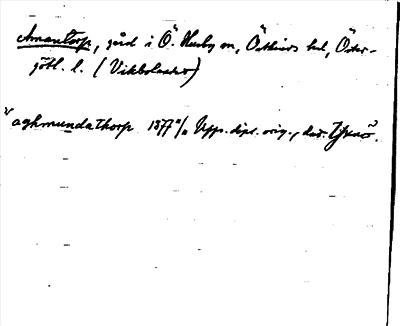 Amantorp, gård i Ö. Husby sn, Östkinds hd, Öster-
götl. l. (Vikbolandet)
"aghmundathorp 1377 Upps. dipl. orig., dat.